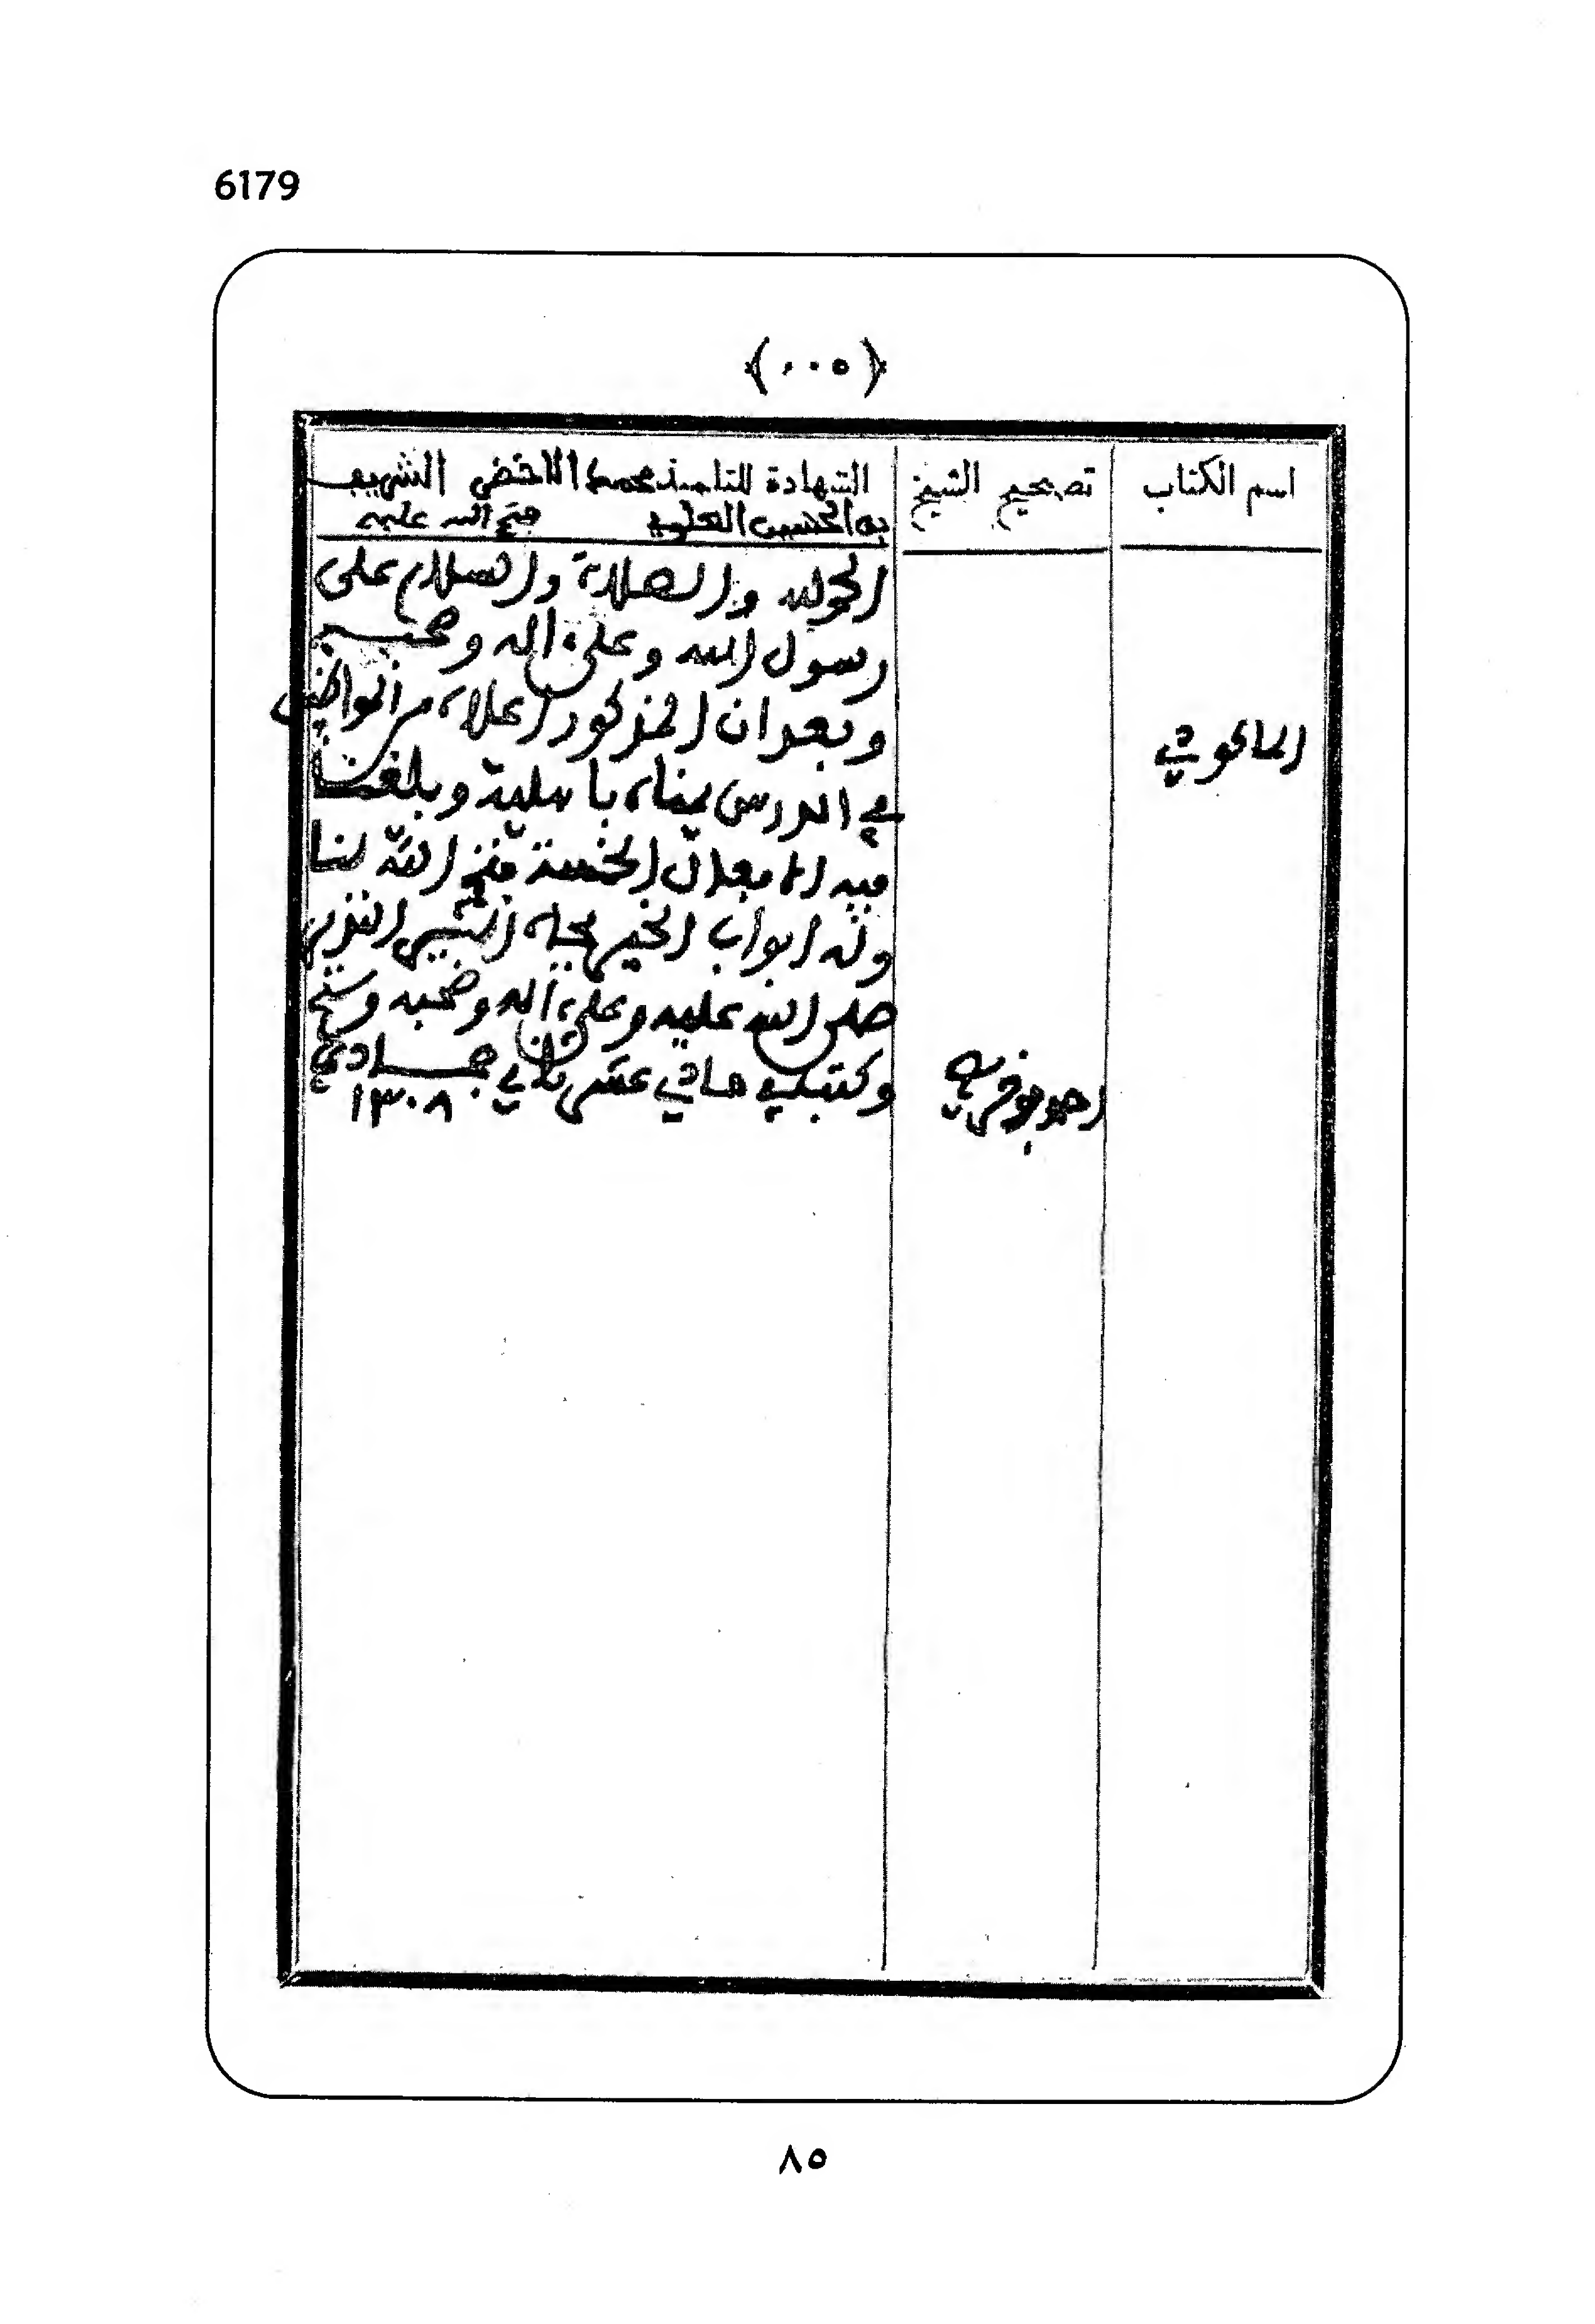 6179
﴿٠٠٥﴾
اسم الكتاب
تصحيح الشيخ
الشهادة للتلميذ محمد الاخضر الشريف
بن الحسين العلوي فتح الله عليه
الحمد لله والصلاة والسلام على
رسول الله وعلى اله وصحبه
وبعد ان المذكور اعلاه من المواظبين
في الدرس بمناه بالكلية وبلغنا
فيه الافعال الخمسة فتح الله لنا
وله ابواب الخير بجاه البشير النذير
صلى الله عليه وعلى اله وصحبه وسلم
وكتب في حادي عشر ثاني جمادي
١٣٠٨
الماكودي
احمد بوقربة
٨٥